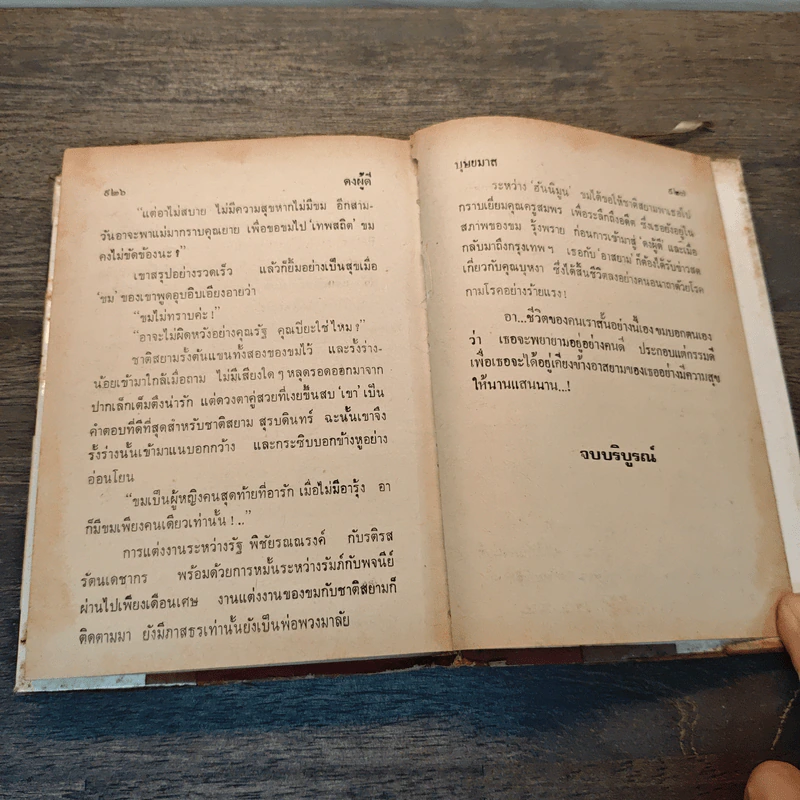 ๕๒๖ ดงผู้ดี
“แต่อาไม่สบาย ไม่มีความสุขหากไม่มีขม อีกสาม-
วันอาจะพาแม่มากราบคุณยาย เพื่อขอขมไป ‘เทพสถิต’ ขม
คงไม่ขัดข้องนะ ?”
เขาสรุปอย่างรวดเร็ว แล้วก็ยิ้มอย่างเป็นสุขเมื่อ
‘ขม’ ของเขาพูดอุบอิบเอียงอายว่า
“ขมไม่ทราบค่ะ !”
“อาจะไม่ผิดหวังอย่างคุณรัฐ คุณเปียะใช่ไหม ?”
ชาติสยามรั้งต้นแขนทั้งสองของขมไว้ และรั้งร่าง-
น้อยเข้ามาใกล้เมื่อถาม ไม่มีเสียงใด ๆ หลุดรอดออกมาจาก
ปากเล็กเต็มตึงน่ารัก แต่ดวงตาคู่สวยที่เงยขึ้นสบ ‘เขา’ เป็น
คำตอบที่ดีที่สุดสำหรับชาติสยาม สุรบดินทร์ ฉะนั้นเขาจึง
รั้งร่างนั้นเข้ามาแนบอกกว้าง และกระซิบบอกข้างหูอย่าง
อ่อนโยน
“ขมเป็นผู้หญิงคนสุดท้ายที่อารัก เมื่อไม่มีอารุ้ง อา
ก็มีขมเพียงคนเดียวเท่านั้น ! ..”
การแต่งงานระหว่างรัฐ พิชัยรณณรงค์ กับรติรส
รัตนเดชากร พร้อมด้วยการหมั้นระหว่างรัมภ์กับพจนีย์
ผ่านไปเพียงเดือนเศษ งานแต่งงานของขมกับชาติสยามก็
ติดตามมา ยังมีภาสธรเท่านั้นยังเป็นพ่อพวงมาลัย
บุษยมาส ๕๒๗
ระหว่าง ‘ฮันนิมูน’ ขมได้ขอให้ชาติสยามพาเธอไป
กราบเยี่ยมคุณครูสมพร เพื่อระลึกถึงอดีต ซึ่งเธอยังอยู่ใน
สภาพของขม รุ้งพราย ก่อนการเข้ามาสู่ ‘ดงผู้ดี’ และเมื่อ
กลับมาถึงกรุงเทพ ฯ เธอกับ ‘อาสยาม’ ก็ต้องได้รับข่าวสด
เกี่ยวกับคุณบุหงา ซึ่งได้สิ้นชีวิตลงอย่างคนอนาถาด้วยโรค
กามโรคอย่างร้ายแรง !
อา...ชีวิตของคนเราสั้นอย่างนี้เอง ขมบอกตนเอง
ว่า เธอจะพยายามอยู่อย่างคนดี ประกอบแต่กรรมดี
เพื่อเธอจะได้อยู่เคียงข้างอาสยามของเธออย่างมีความสุข
ให้นานแสนนาน...!
จบบริบูรณ์